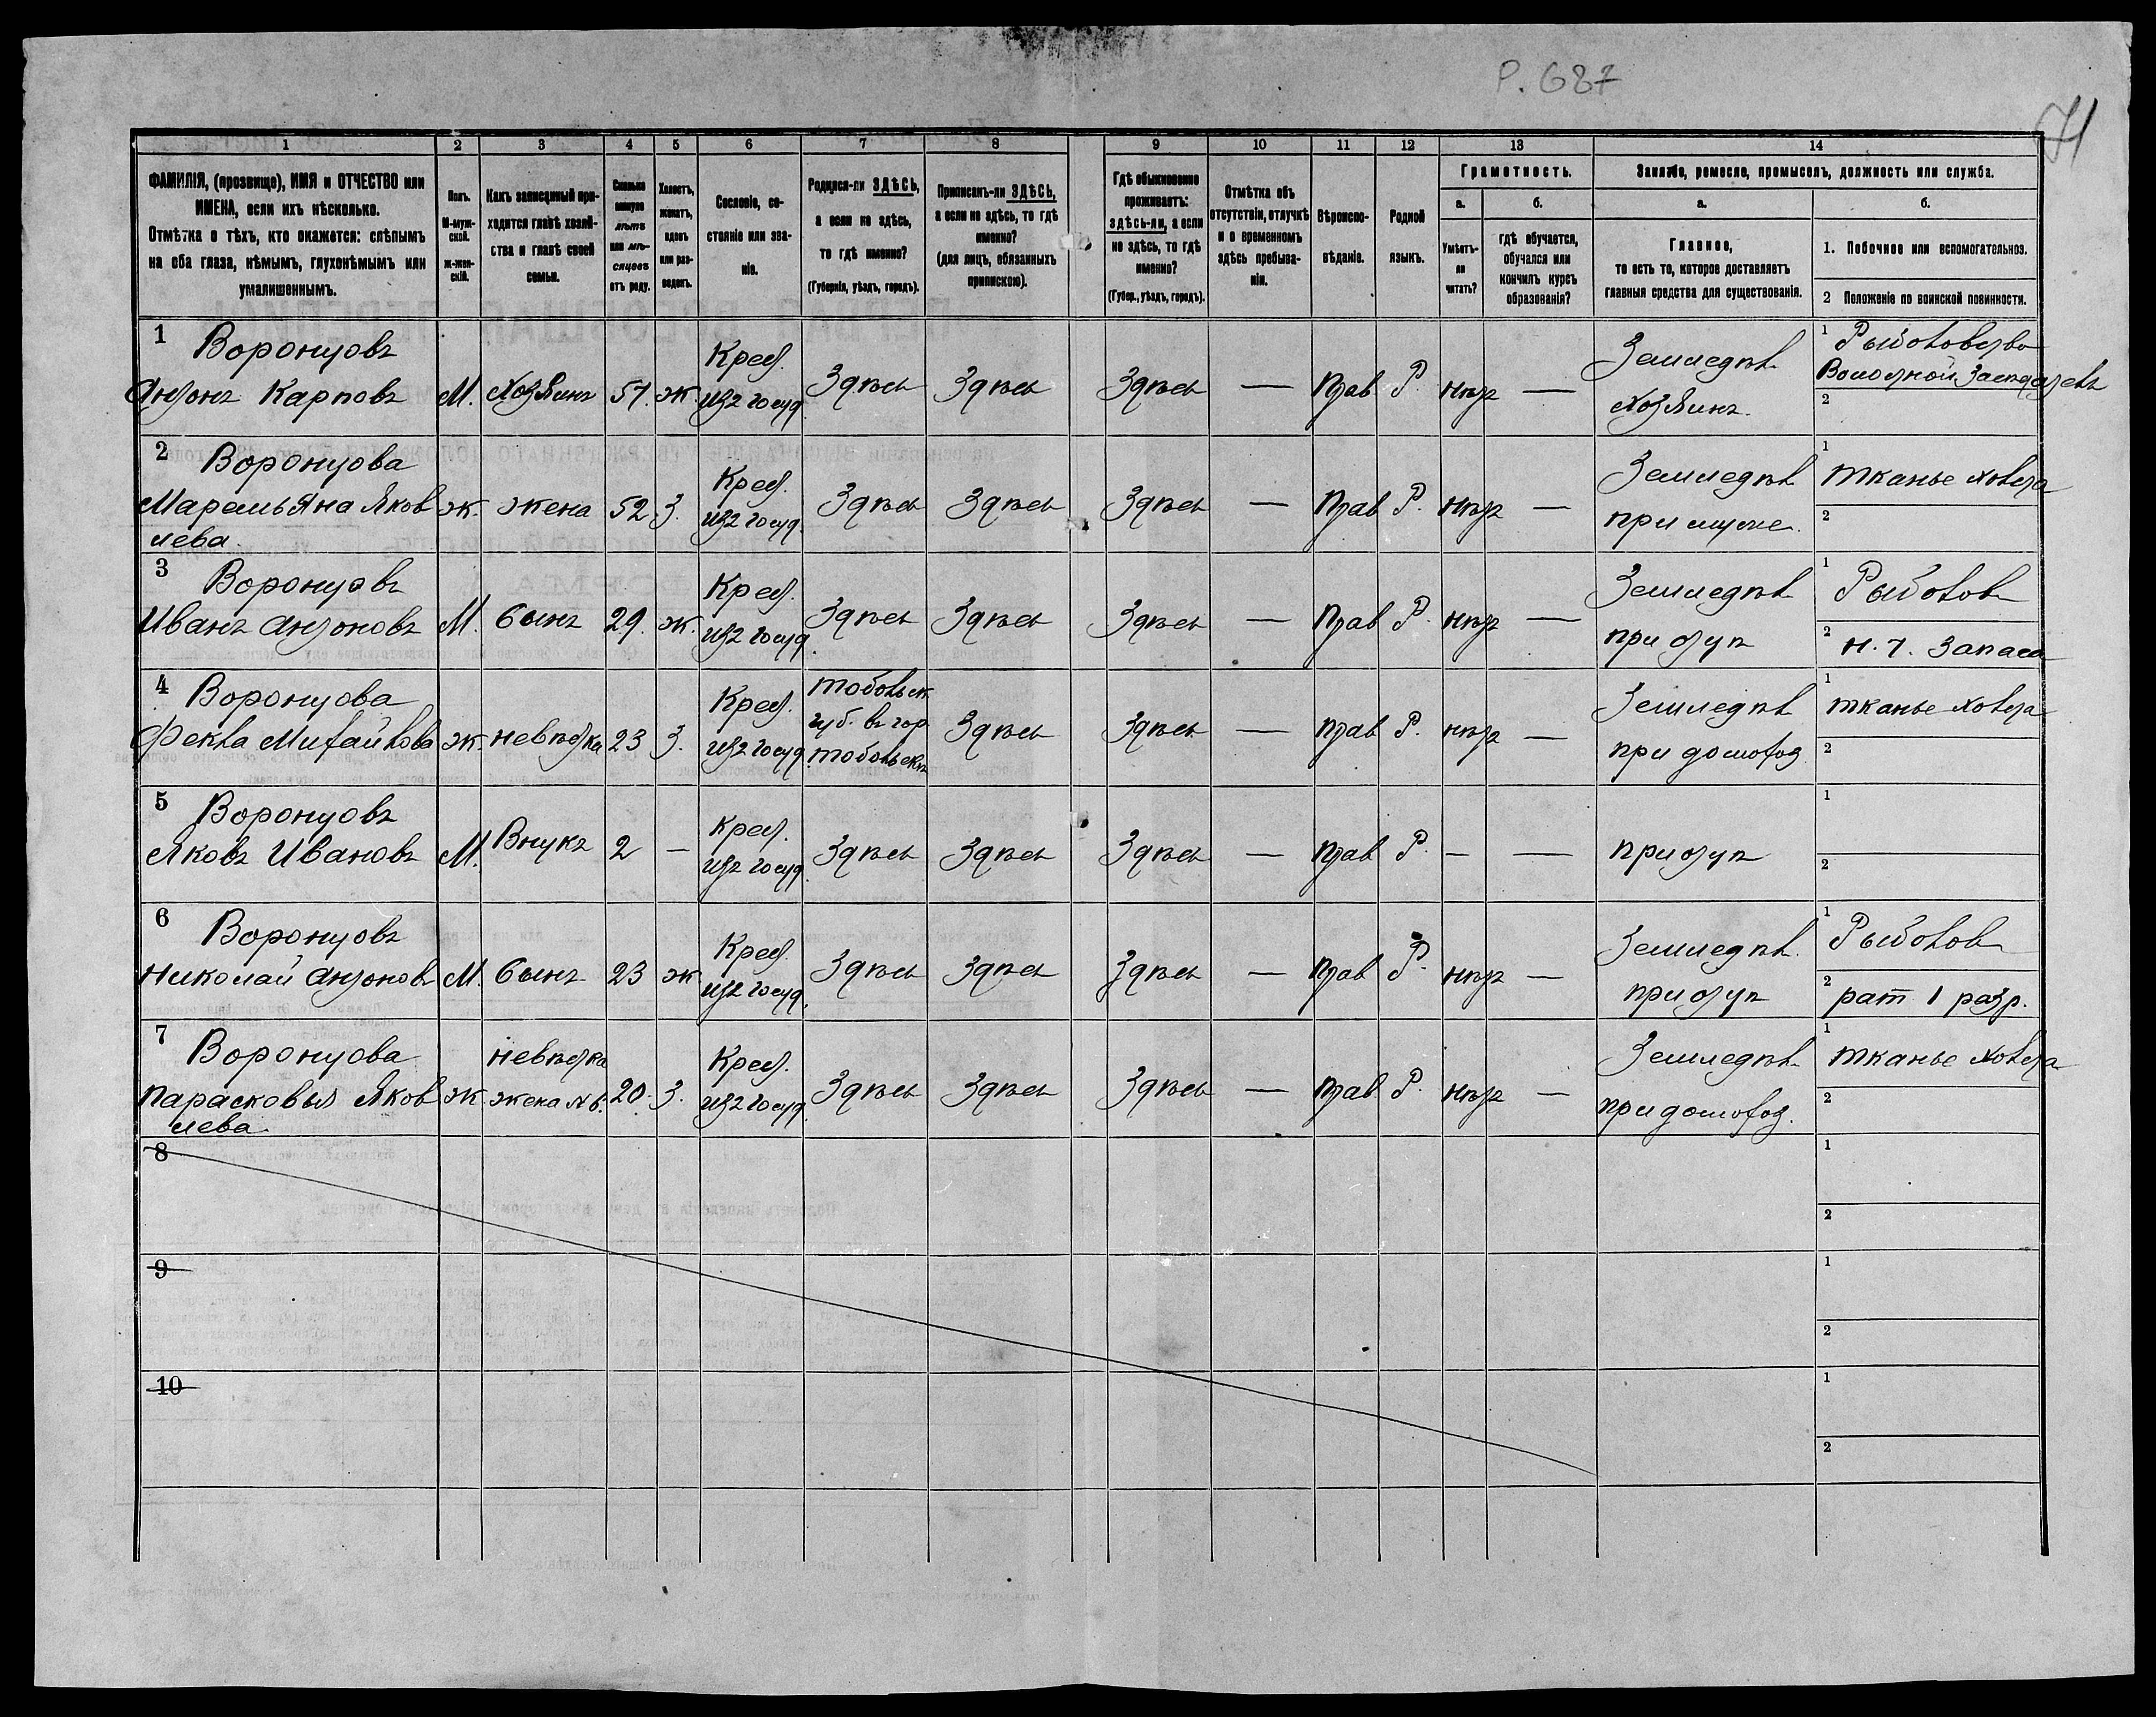 P. 687
71
1 2 3 4 5 6 7 8 9 10 11 12 13 14
ФАМИЛІЯ, (прозвище), ИМЯ и ОТЧЕСТВО или
ИМЕНА, если ихъ нѣсколько.
Отмѣтка о тѣхъ, кто окажется: слѣпымъ
на оба глаза, нѣмымъ, глухонѣмымъ или
умалишеннымъ.
Полъ.
М-муж-
ской.
ж-жен-
скій.
Какъ записанный при-
ходится главѣ хозяй-
ства и главѣ своей
семьи.
Сколько
минуло
лѣтъ
или мѣ-
сяцевъ
отъ роду.
Холостъ,
женатъ,
вдовъ
или раз-
веденъ.
Сословіе, со-
стояніе или зва-
ніе.
Родился-ли ЗДѢСЬ,
а если не здѣсь,
то гдѣ именно?
(Губернія, уѣздъ, городъ).
Приписанъ-ли ЗДѢСЬ,
а если не здѣсь, то гдѣ
именно?
(для лицъ, обязанныхъ
припискою).
Гдѣ обыкновенно
проживаетъ:
здѣсь-ли, а если
не здѣсь, то гдѣ
именно?
(Губер., уѣздъ, городъ).
Отмѣтка объ
отсутствіи, отлучкѣ
и о временномъ
здѣсь пребыва-
ніи.
Вѣроиспо-
вѣданіе.
Родной
языкъ.
Грамотность.
а.
Умѣетъ-
ли
читать?
б.
гдѣ обучается,
обучался или
кончилъ курсъ
образованія?
Занятіе, ремесло, промыселъ, должность или служба.
а.
Главное,
то есть то, которое доставляетъ
главныя средства для существованія.
б.
1. Побочное или вспомогательное.
2 Положеніе по воинской повинности.
1 Воронцовъ
Антонъ Карповъ М. Хозяинъ 57. ж. Крест. изъ госуд. Здѣсь Здѣсь Здѣсь — Прав. Р. нѣтъ — Земледѣл. Хозяинъ.
1 Рыболовство
Волостной Заседатель
2
2 Воронцова
Маремьяна Яков
лева. ж. жена 52 З. Крест. изъ госуд. Здѣсь Здѣсь Здѣсь — Прав Р. нѣтъ — Земледѣл при муже.
1 тканье холста
2
3 Воронцовъ
Иванъ Антоновъ М. Сынъ 29. ж. Крест. изъ госуд. Здѣсь Здѣсь Здѣсь — Прав Р. нѣтъ — Земледѣл при отцѣ
1 Рыболов
2 н. ч. Запаса
4 Воронцова
Фекла Михайлова ж. невѣстка 23 З. Крест. изъ госуд. Тобольск. губ. въ гор. Тобольскѣ Здѣсь Здѣсь — прав Р. нѣтъ — Земледѣл при домохоз.
1 тканье холста
2
5 Воронцовъ
Яковъ Ивановъ М. Внукъ 2 — Крест. изъ госуд. Здѣсь Здѣсь Здѣсь — прав Р. — — при отцѣ
1
2
6 Воронцовъ
Николай Антоновъ М. Сынъ 23 ж Крест. изъ госуд. Здѣсь Здѣсь Здѣсь — Прав Р. нѣтъ — Земледѣл. при отцѣ
1 Рыболов
2 рат 1 разр.
7 Воронцова
Парасковья Яков
лева. ж невѣстка жена №6. 20. З. Крест. изъ госуд. Здѣсь Здѣсь Здѣсь — прав. Р. нѣтъ — Земледѣл. при домохоз.
1 тканье холста
2
8
1
2
9
1
2
10
1
2